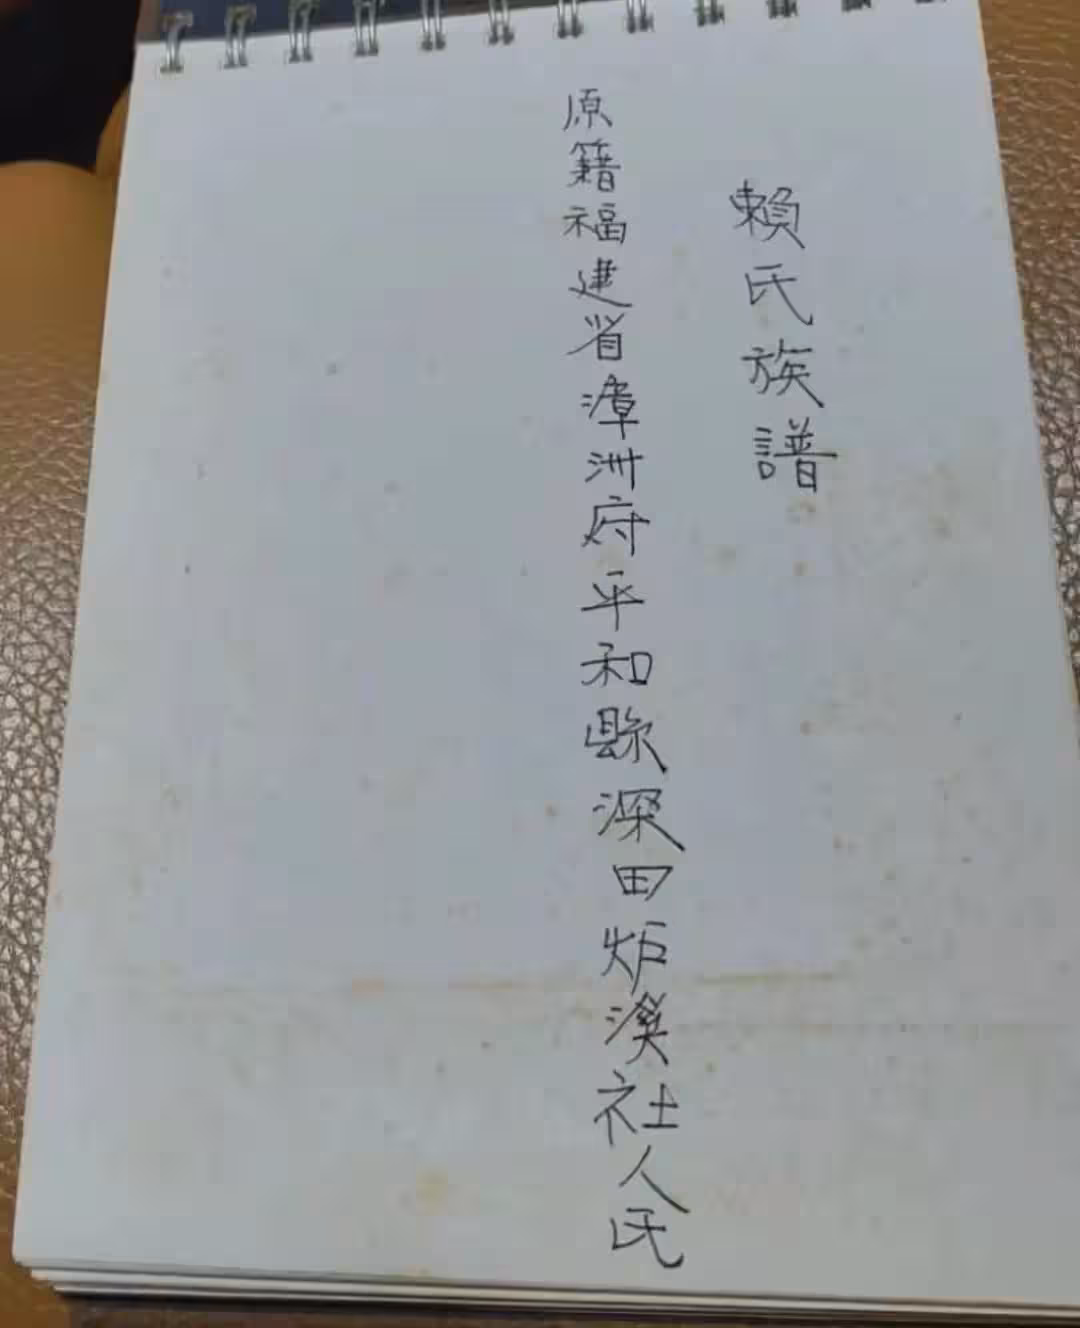 賴氏族譜
原籍福建省漳洲府平和縣深田炉溪社人民